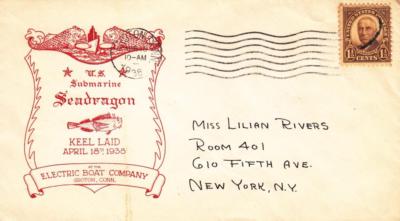 10-AM
1938
U.S.
Submarine
Seadragon
KEEL LAID
APRIL 18TH 1938
AT THE
ELECTRIC BOAT COMPANY
GROTON, CONN.
1½ CENTS 1½
MISS LILIAN RIVERS
ROOM 401
610 FIFTH AVE.
NEW YORK, N.Y.